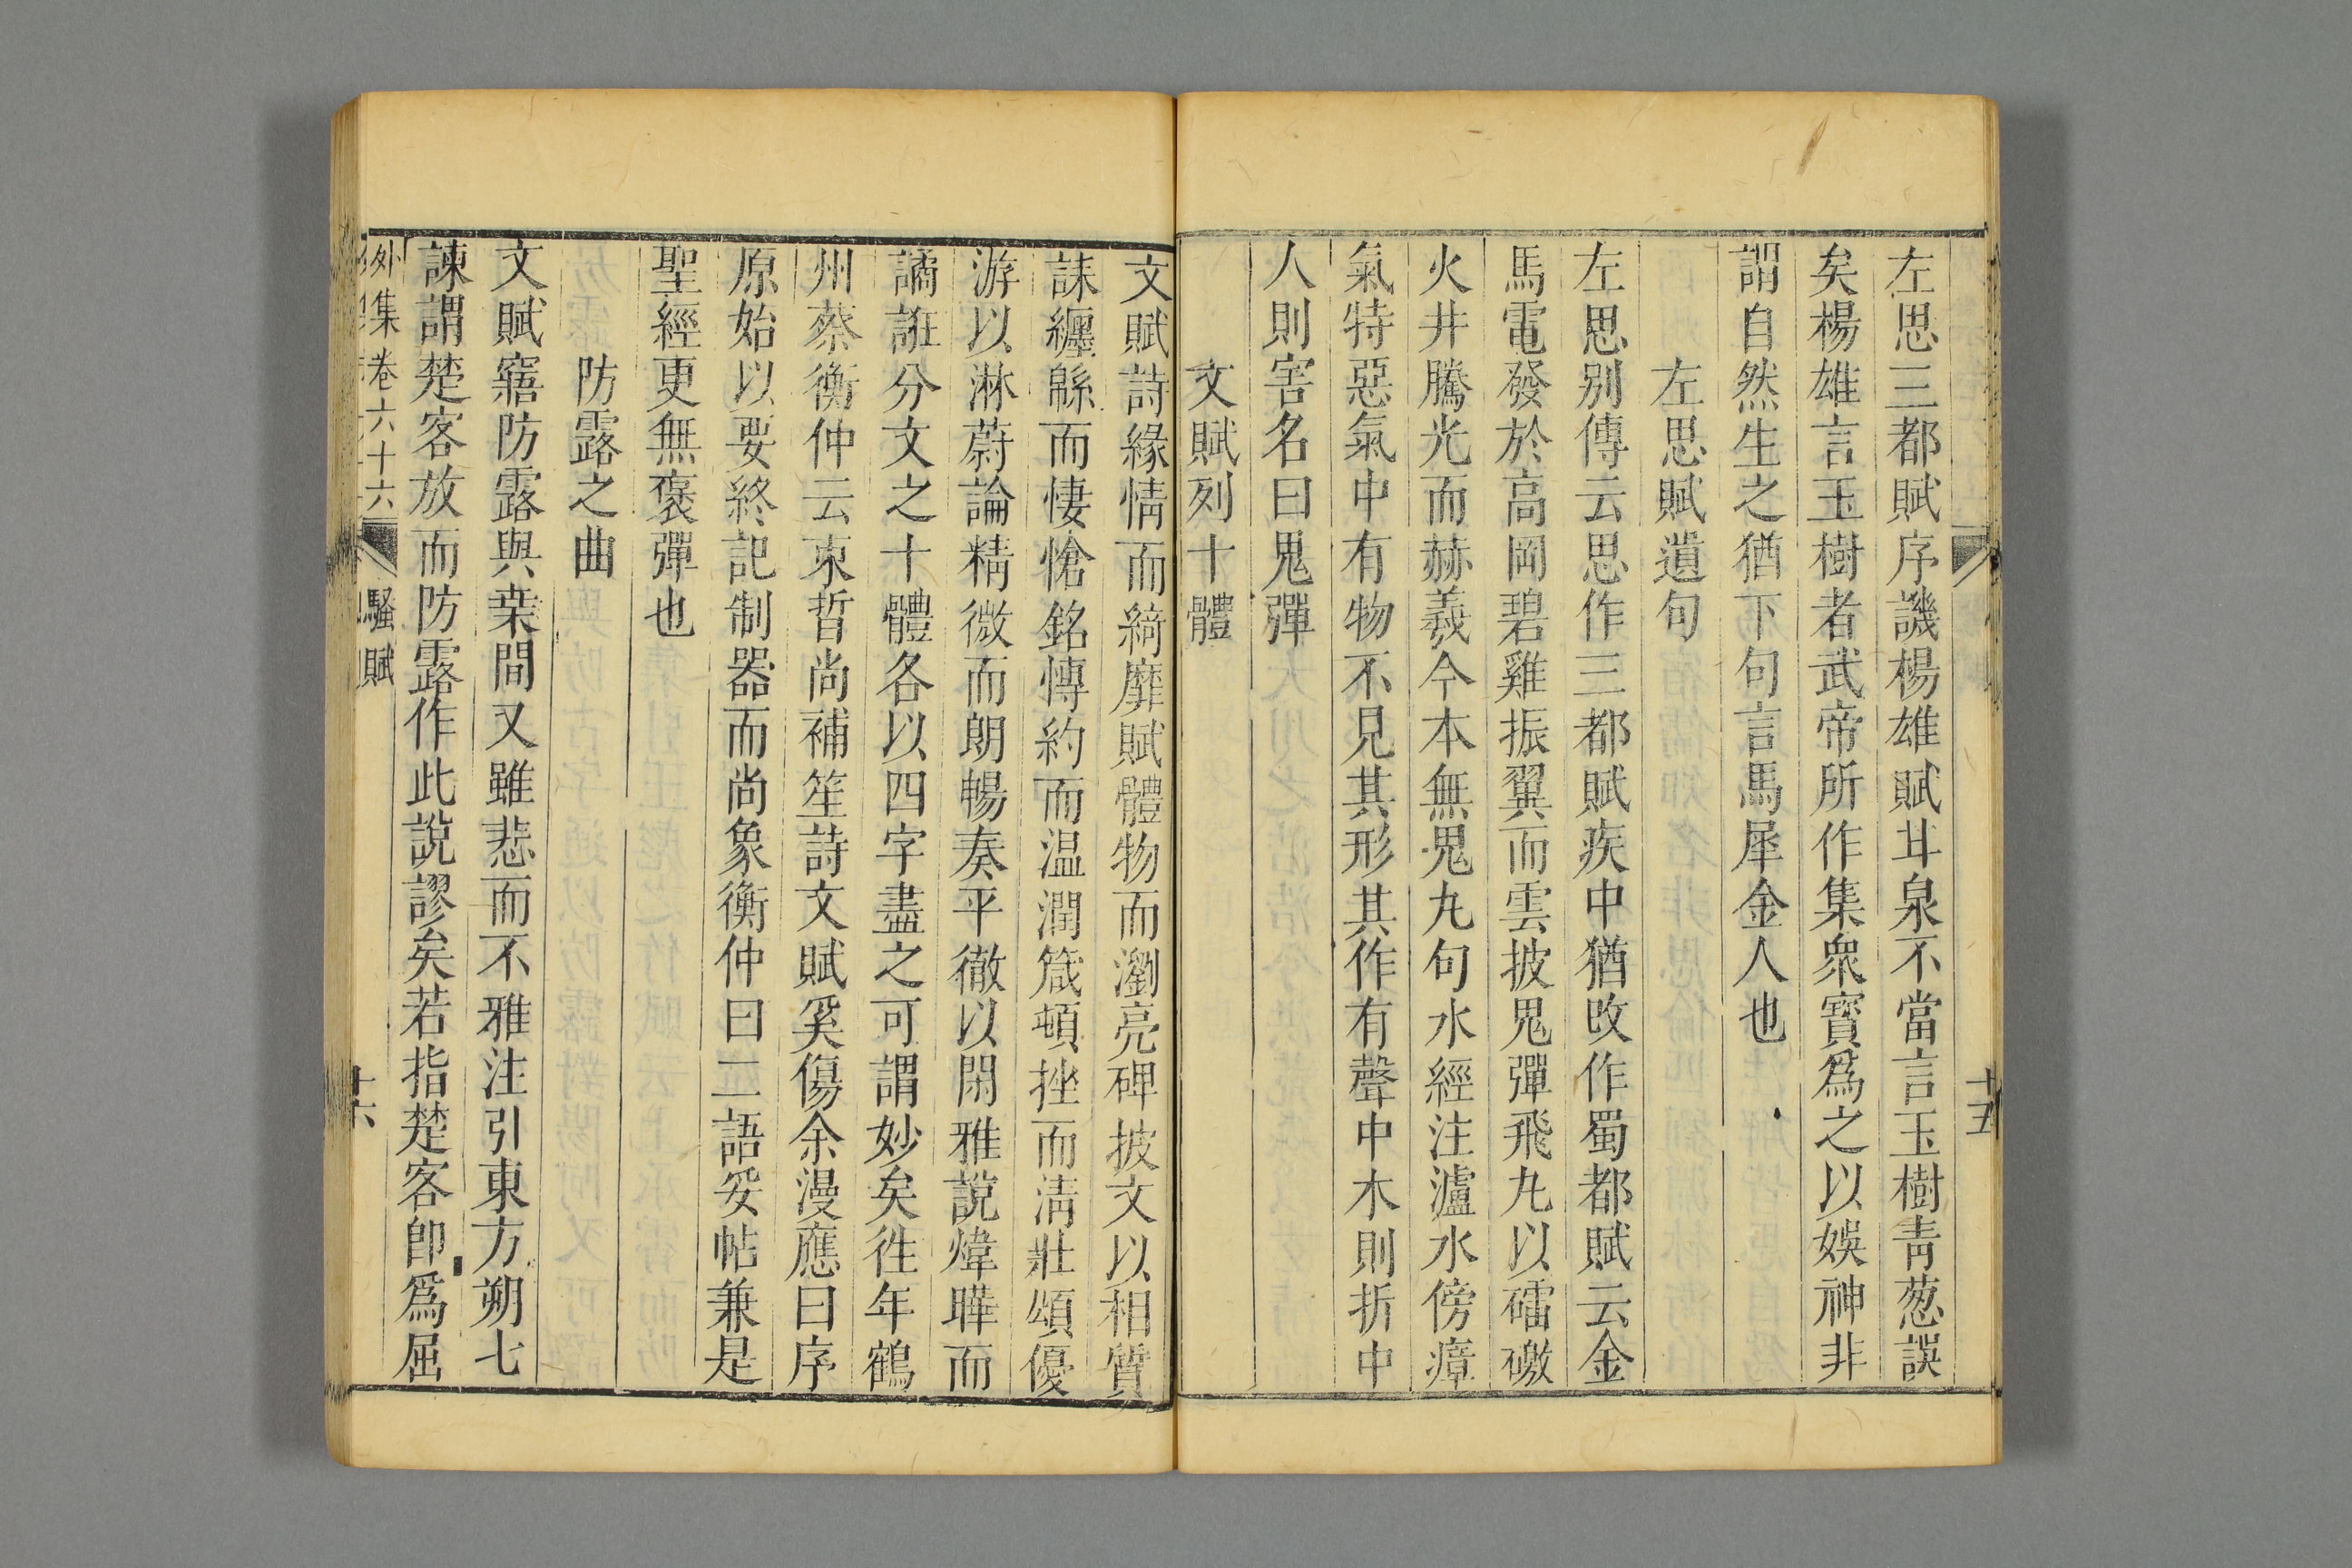 左思三都賦序譏楊雄賦甘泉不當言玉樹青葱誤
矣楊雄言玉樹者武帝所作集衆寳爲之以娛神非
謂自然生之猶下句言馬犀金人也
左思賦遺句
左思别傳云思作三都賦疾中猶攺作蜀都賦云金
馬電發於高岡碧雞振翼而雲披鬼彈飛丸以礌礉
火井騰光而赫羲今本無鬼丸句水經注瀘水傍瘴
氣特惡氣中有物不見其形其作有聲中木則折中
人則害名曰鬼彈
文賦列十體
十五
文賦詩緣情而綺靡賦體物而瀏亮碑披文以相質
誄纏緜而悽愴銘愽約而温潤箴頓挫而淸壯頌優
游以淋蔚論精微而朗暢奏平徹以閑雅說煒曄而
譎誑分文之十體各以四字盡之可謂妙矣徃年鶴
州蔡衡仲云束晳尚補笙詩文賦奚傷余漫應曰序
原始以要終記制器而尚象衡仲曰二語妥帖兼是
聖經更無褒彈也
防露之曲
文賦寤防露與桒間又雖悲而不雅注引東方朔七
諫謂楚客放而防露作此說謬矣若指楚客卽爲屈
外集卷六十六 騷賦 十六